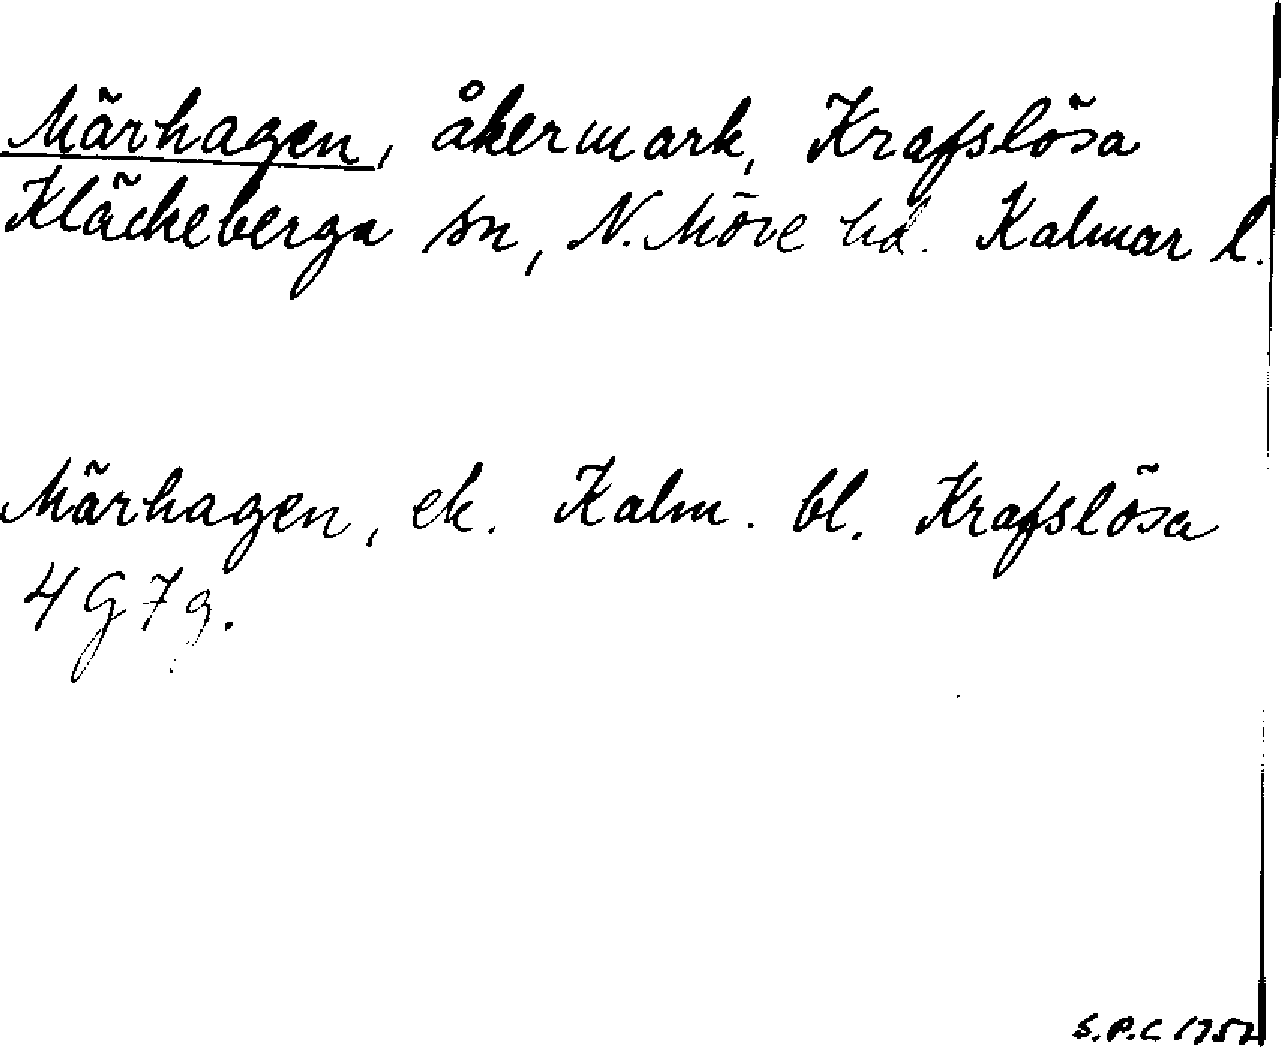 Märhagen, åkermark, Krafslösa
Kläckeberga sn, N. Möre hd. Kalmar l.
Märhagen, ek. Kalm. bl. Krafslösa
4 G 7 g.
S.P.C 1757